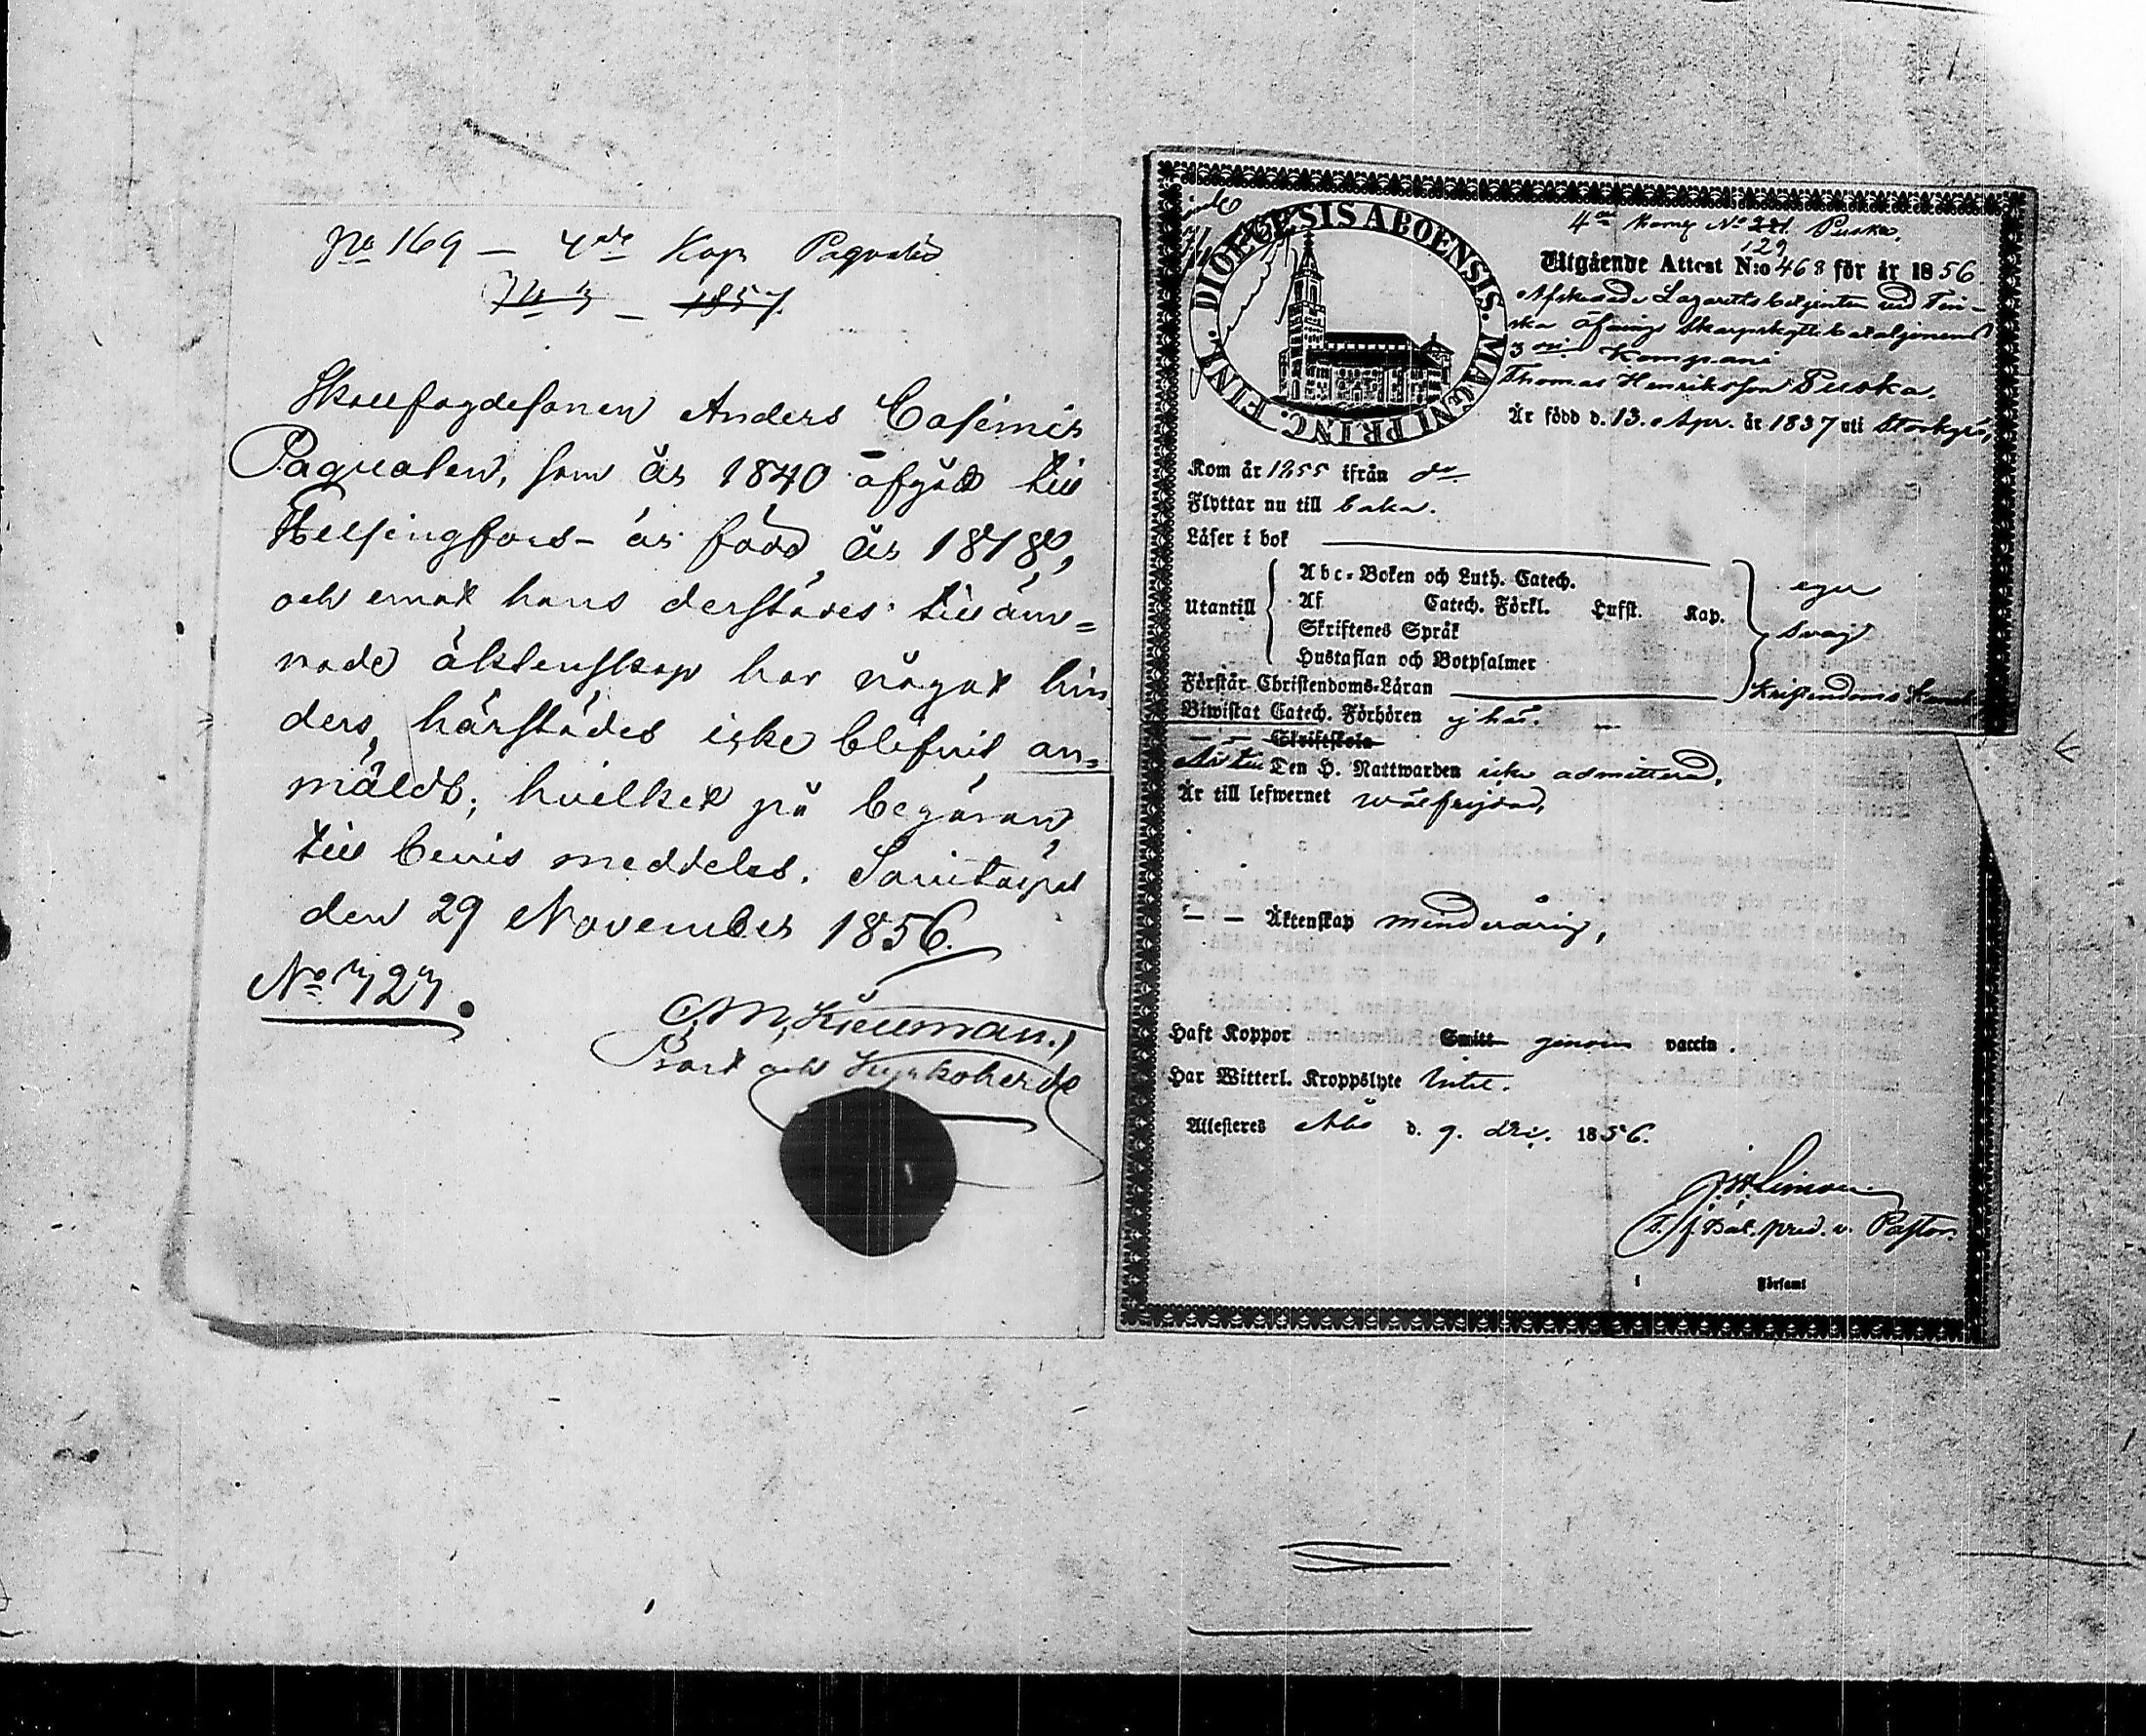 No 169 — 4de Kop Paqvalin
No 3 — 1857.
Skallfogdesonen Anders Casimir
Paqvalen, som år 1840 afgått till
Helsingfors – är född år 1818,
och emot hans derstädes tilläm=
nade äktenskap har något hin
ders härstädes icke blifvit an=
mäldt; hvilket på begäran
till bevis meddelas. Savitaipal
den 29 November 1856.
No 727.
Prost och Kyrkoherde
DIOECESIS ABOENSIS. MAGNI PRINC. FINL.
4de Komp No 221 Puska.
129
Utgående Attest N:o 468 för år 1856
Afskedade Lazaretts betjenten vid Fin-
ska öfnings Skarpskyttebataljonens
3die Kompani
Thomas Henriksson Puska.
Är född d. 13. Apr. år 1837 uti Storkyro,
Kom år 1855 ifrån do
Flyttar nu till baka.
Läser i bok
Utantill
Abc-Boken och Luth. Catech.
Af Catech. Förkl. Hufst. Kap.
Skriftenes Språk
Hustaflan och Botpsalmer
eger
svag
Förstår Christendoms-Läran
kristendoms kunsk
Biwistat Catech. Förhören ej här. —
— — Skriftskola
Är till Den H. Nattwarden icke admitterad,
Är till lefwernet wälfrejdad,
— — Äktenskap minderårig,
Haft Koppor Smitt genom vaccin.
Har Witterl. Kroppslyte Intet.
Attesteres Åbo d. 9. Dec. 1856.
T. f. Bat. pred. o. Pastor.
i Församl